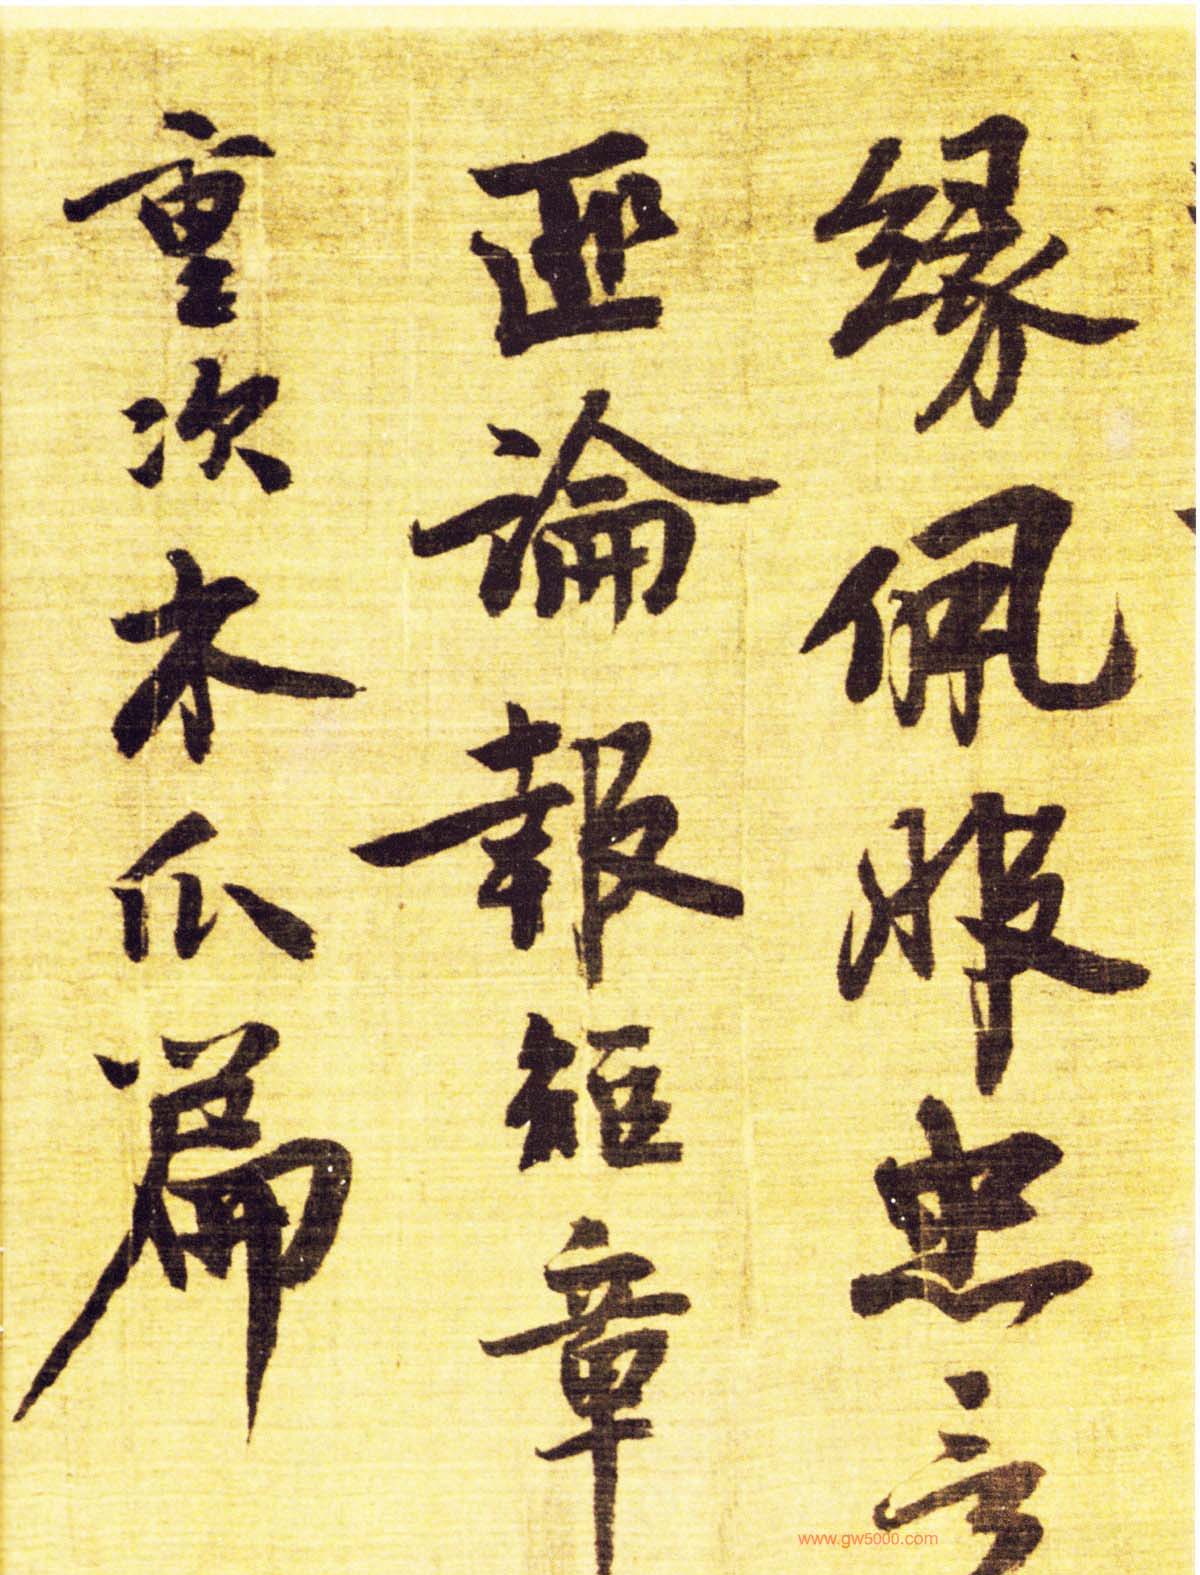 緣佩服忠言
匪論報短章
重次木瓜篇
www.gw5000.com